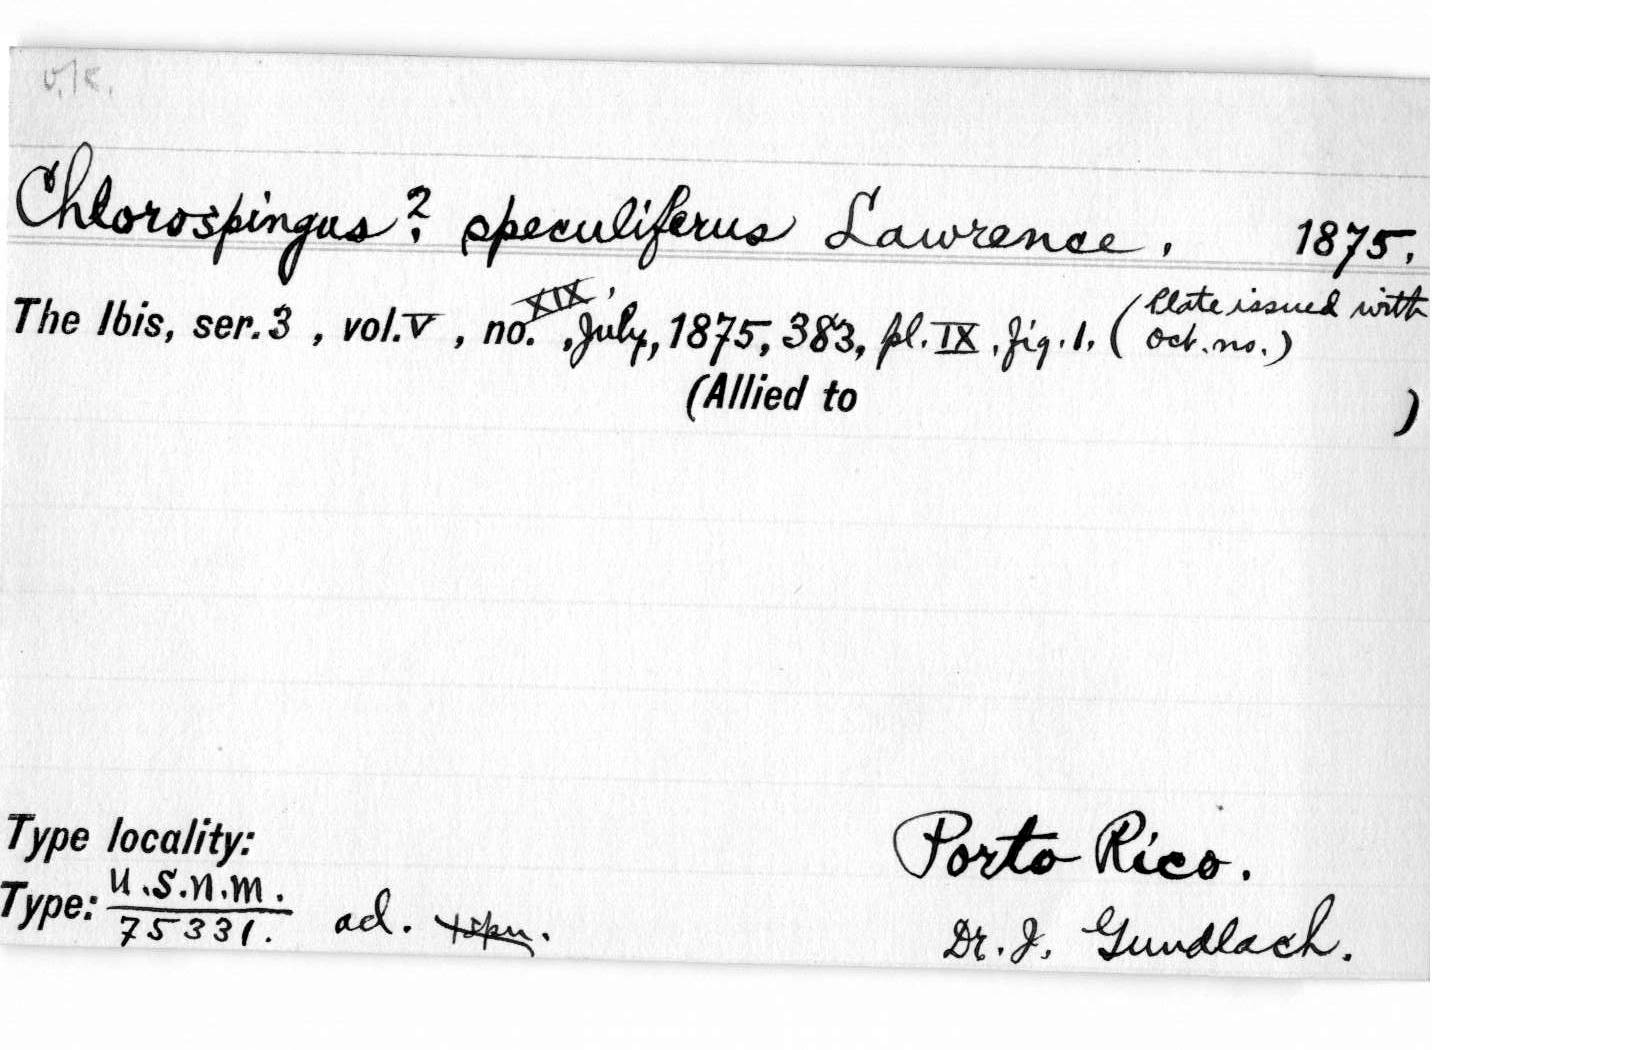 v.k.
Chlorospingus? speculiferus Lawrence, 1875.
The Ibis, ser. 3, vol. V, no. XIX, July, 1875, 383, pl. IX, fig. 1. (Plate issued with
Oct. no.)
(Allied to )
Type locality: Porto Rico.
Type: U.S.N.M. ad.
75331. Dr. J. Gundlach.